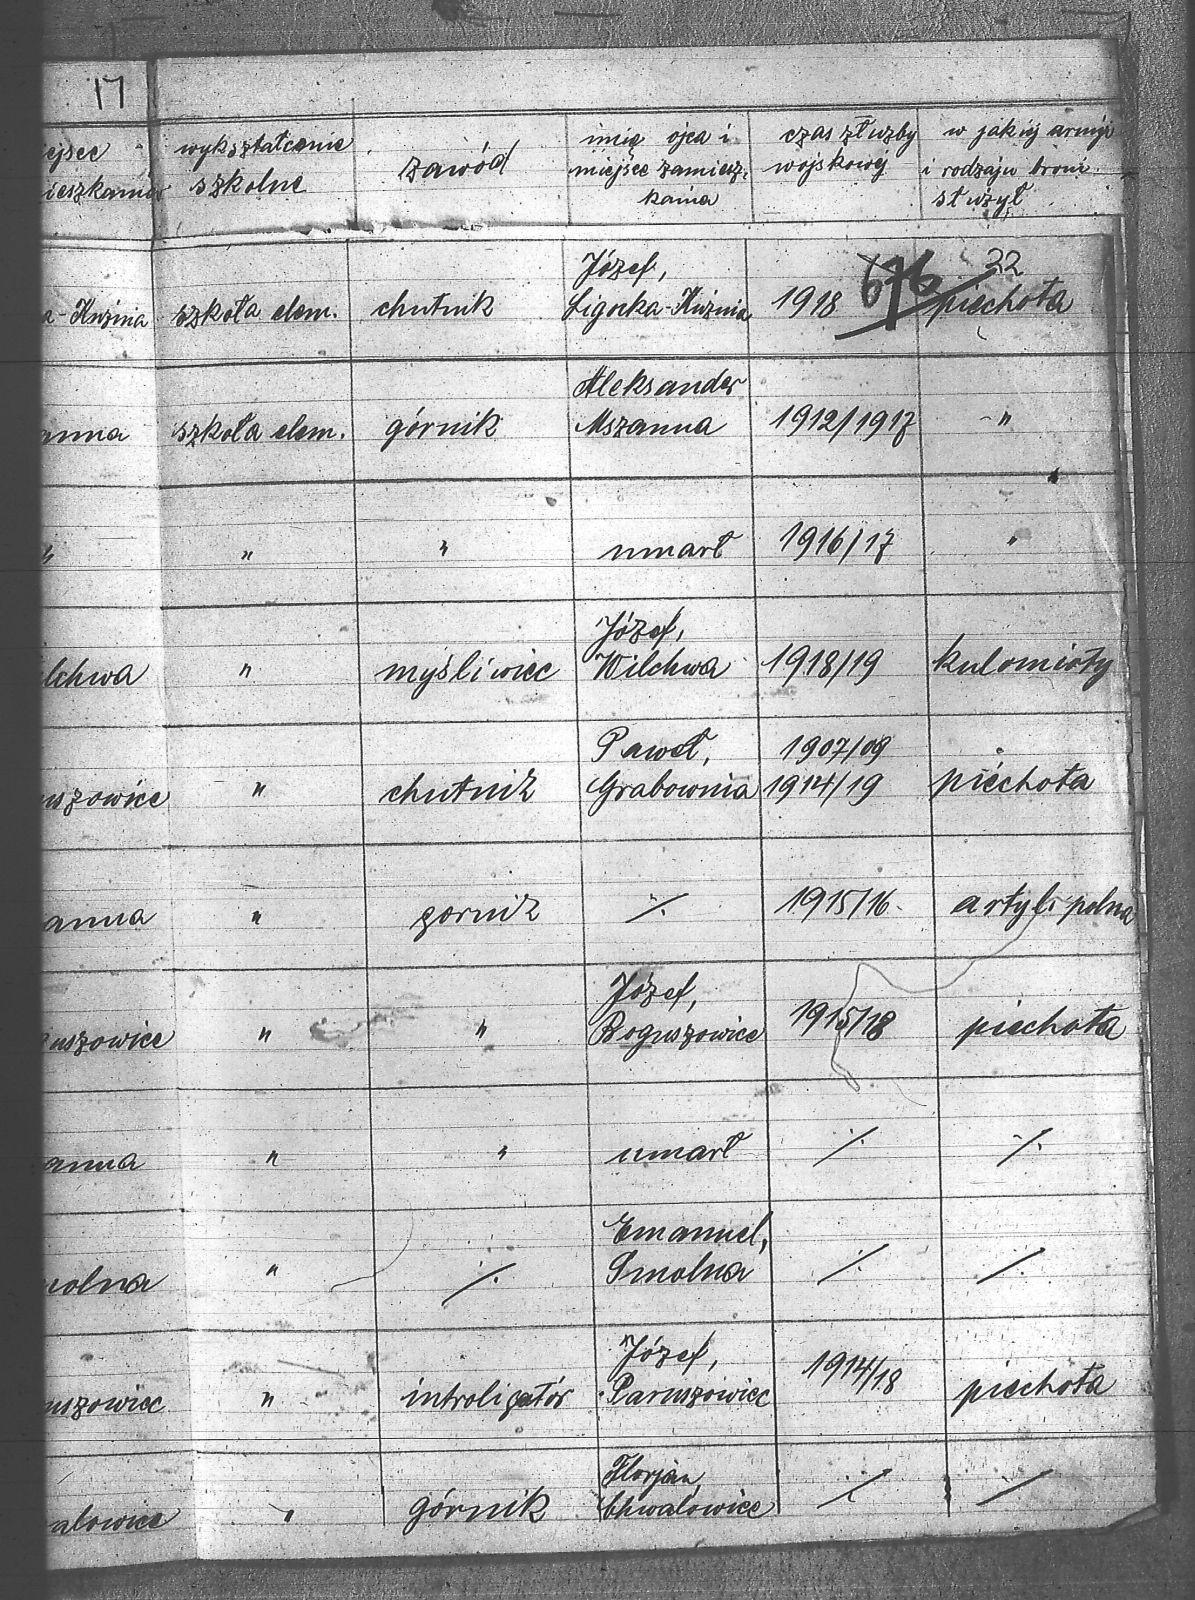 17
wykształcenie szkolne
zawód
imię ojca i miejsce zamieszkania
czas służby wojskowej
w jakiej armji i rodzaju broni służył
676 32
a-Kuźnia szkoła elem. chutnik Józef, Ligocka-Kuźnia 1918 piechota
anna szkoła elem. górnik Aleksander Mszanna 1912/1917 -"
" " " umarł 1916/17 "
ilchwa " myśliwiec Józef, Wilchwa 1918/19 kulomioty
uszowice " chutnik Paweł, Grabownia 1907/09 1914/19 piechota
anna " gornik ⁒ 1915/16 artyl. polna
uszowice " " Józef, Boguszowice 1915/18 piechota
anna " " umarł ⁒ ⁒
molna " ⁒ Emanuel, Smolna ⁒ ⁒
uszowiec " introligatór Józef, Paruszowiec 1914/18 piechota
alowice " górnik Florjan, Chwalowice ⁒ ⁒